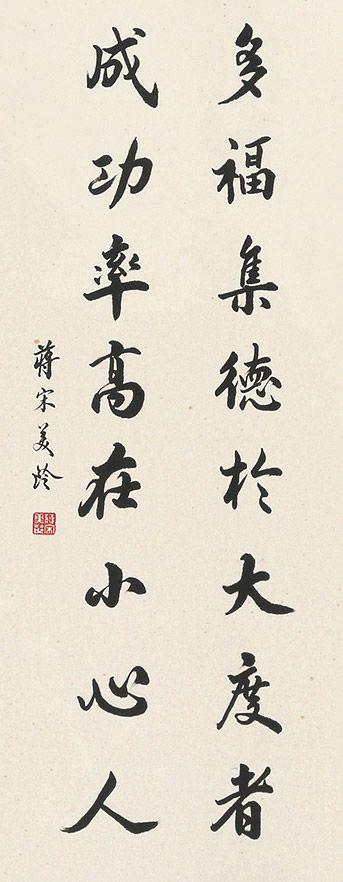 多福集德於大度者
成功率高在小心人
蔣宋美齡